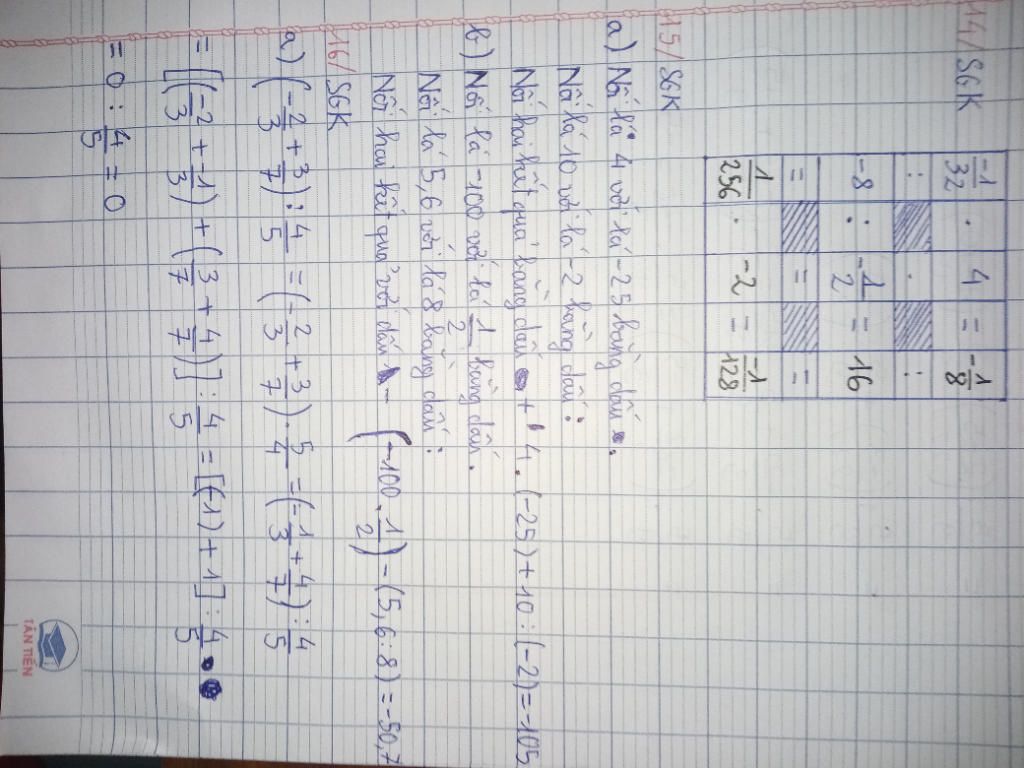 14/ SGK
-1/32 . 4 = -1/8
: . :
-8 : -1/2 = 16
= = =
1/256 . -2 = -1/128
15/ SGK
a) Nối lá 4 với lá -25 bằng dấu .
Nối lá 10 với lá -2 bằng dấu :
Nối hai kết quả bằng dấu + 4 . (-25) + 10 : (-2) = -105
b) Nối lá -100 với lá 1/2 bằng dấu .
Nối lá 5,6 với lá 8 bằng dấu :
Nối hai kết quả với dấu - (-100 . 1/2) - (5,6 : 8) = -50,7
16/ SGK
a) (-2/3 + 3/7) : 4/5 = (-2/3 + 3/7) . 5/4 = (-1/3 + 4/7) : 4/5
= [(-2/3 + -1/3) + (3/7 + 4/7)] : 4/5 = [(-1) + 1] : 4/5
= 0 : 4/5 = 0
TÂN TIẾN